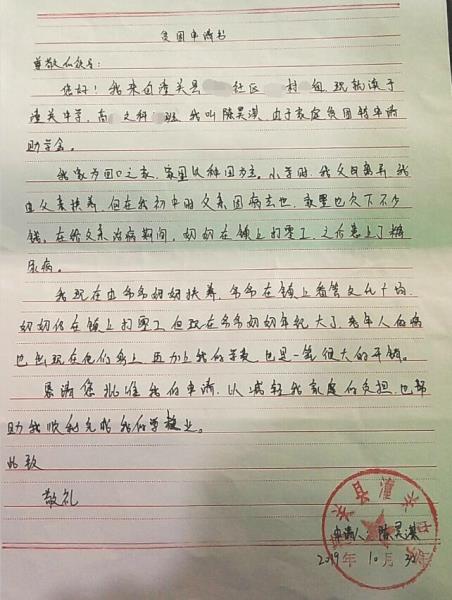 贫困申请书
尊敬的领导：
您好！我来自潼关县 社区 村 组，现就读于
潼关中学，高 文科 班，我叫陈昊淇，由于家庭贫困特申请
助学金。
我家为四口之家，家里以种田为主。小学时，我父母离异，我
由父亲扶养，但在我初中时父亲因病去世，家里也欠下不少
钱。在给父亲治病期间，奶奶在镇上打零工，之后患上了糖
尿病。
我现在由爷爷奶奶扶养，爷爷在镇上看管文化广场，
奶奶仍在镇上打零工，但现在爷爷奶奶年纪大了，老年人的病
也出现在他们身上，再加上我的学费，也是一笔很大的开销。
恳请您批准我的申请，以减轻我家庭的负担，也帮
助我顺利完成我的学业。
此致
敬礼
申请人：陈昊淇
2019年10月30日